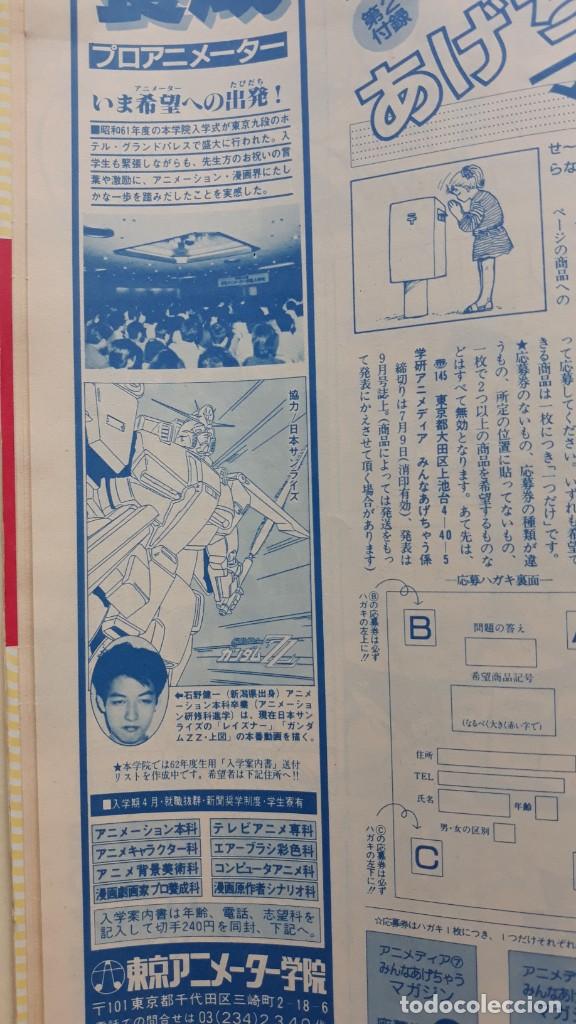 プロアニメーター
アニメーター たびだち
いま希望への出発！
■昭和61年度の本学院入学式が東京九段のホ
テル・グランドパレスで盛大に行われた。入
学生も緊張しながらも、先生方のお祝いの言
葉や激励に、アニメーション・漫画界にたし
かな一歩を踏みだしたことを実感した。
協力／日本サンライズ
ガンダムZZ
←石野健一（新潟県出身）アニメ
ーション本科卒業（アニメーショ
ン研修科進学）は、現在日本サン
ライズの「レイズナー」「ガンダ
ムZZ・上図」の本番動画を描く。
★本学院では62年度生用「入学案内書」送付
リストを作成中です。希望者は下記住所へ!!
■入学期4月・就職抜群・新聞奨学制度・学生寮有
アニメーション本科
テレビアニメ専科
アニメキャラクター科
エアーブラシ彩色科
アニメ背景美術科
コンピュータアニメ科
漫画劇画家プロ養成科
漫画原作者シナリオ科
入学案内書は年齢、電話、志望科を
記入して切手240円を同封、下記へ。
東京アニメーター学院
〒101 東京都千代田区三崎町2-18-6
電話での問合せは 03(234)2340代
第2付録
あげ
せ〜
らな
ページの商品への
って応募してください。いずれも希望で
きる商品は一枚につき「一つだけ」です。
★応募券のないもの、応募券の種類が違
うもの、所定の位置に貼ってないもの、
一枚で2つ以上の商品を希望するものな
どはすべて無効となります。あて先は、
〒145 東京都大田区上池台4-40-5
学研アニメディア みんなあげちゃう係
締切りは7月9日（消印有効）、発表は
9月号誌上。（商品によっては発送をもっ
て発表にかえさせて頂く場合があります）
応募ハガキ裏面
Ⓑの応募券は必ず
ハガキの左上に!!
B
問題の答え
希望商品記号
（なるべく大きく赤い字で）
住所
TEL
氏名
年齢
男・女の区別
Ⓒの応募券は必ず
ハガキの左下に!!
C
☆応募券はハガキ1枚につき、1つだけそれぞれ
アニメディア⑦
みんなあげちゃう
マガジン
アニメデ
みんなあ
todocoleccion